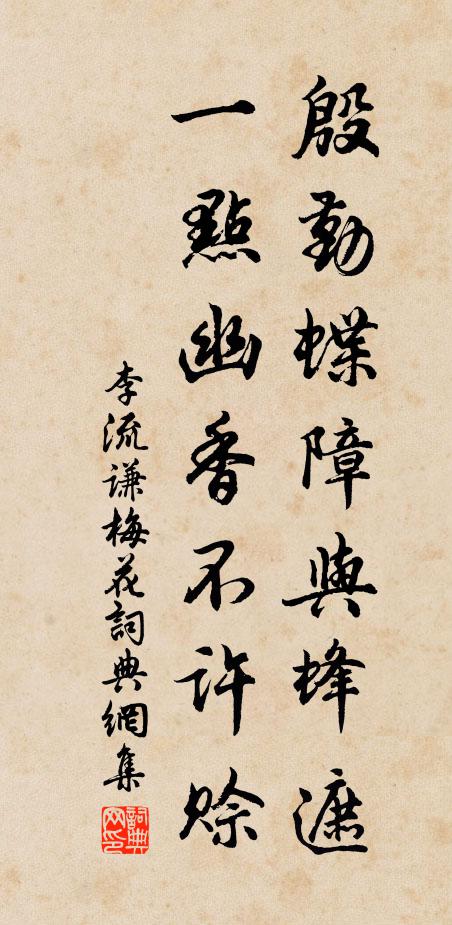 殷勤蝶障與蜂遮
一點幽香不許賒
李流谦梅花詞典網集
詞典网印